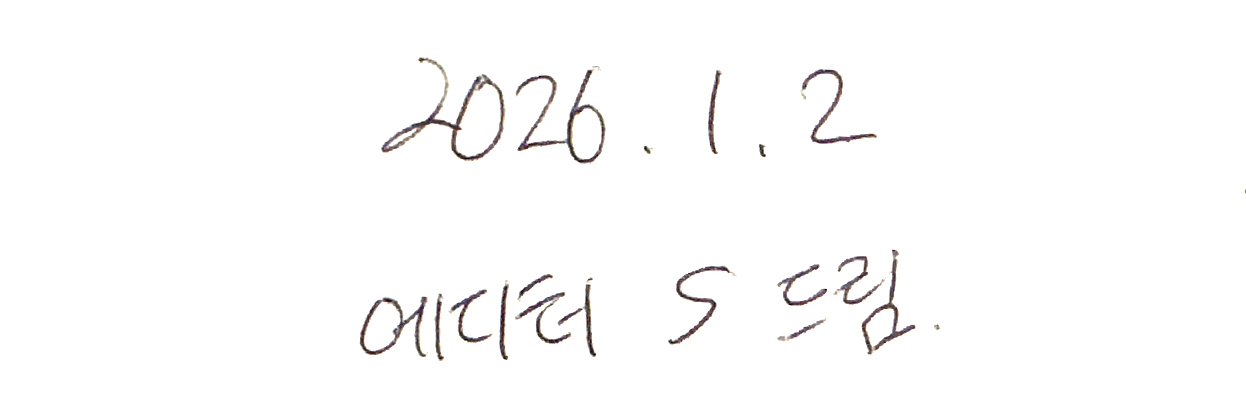 2026.1.2
에디터 S 드림.